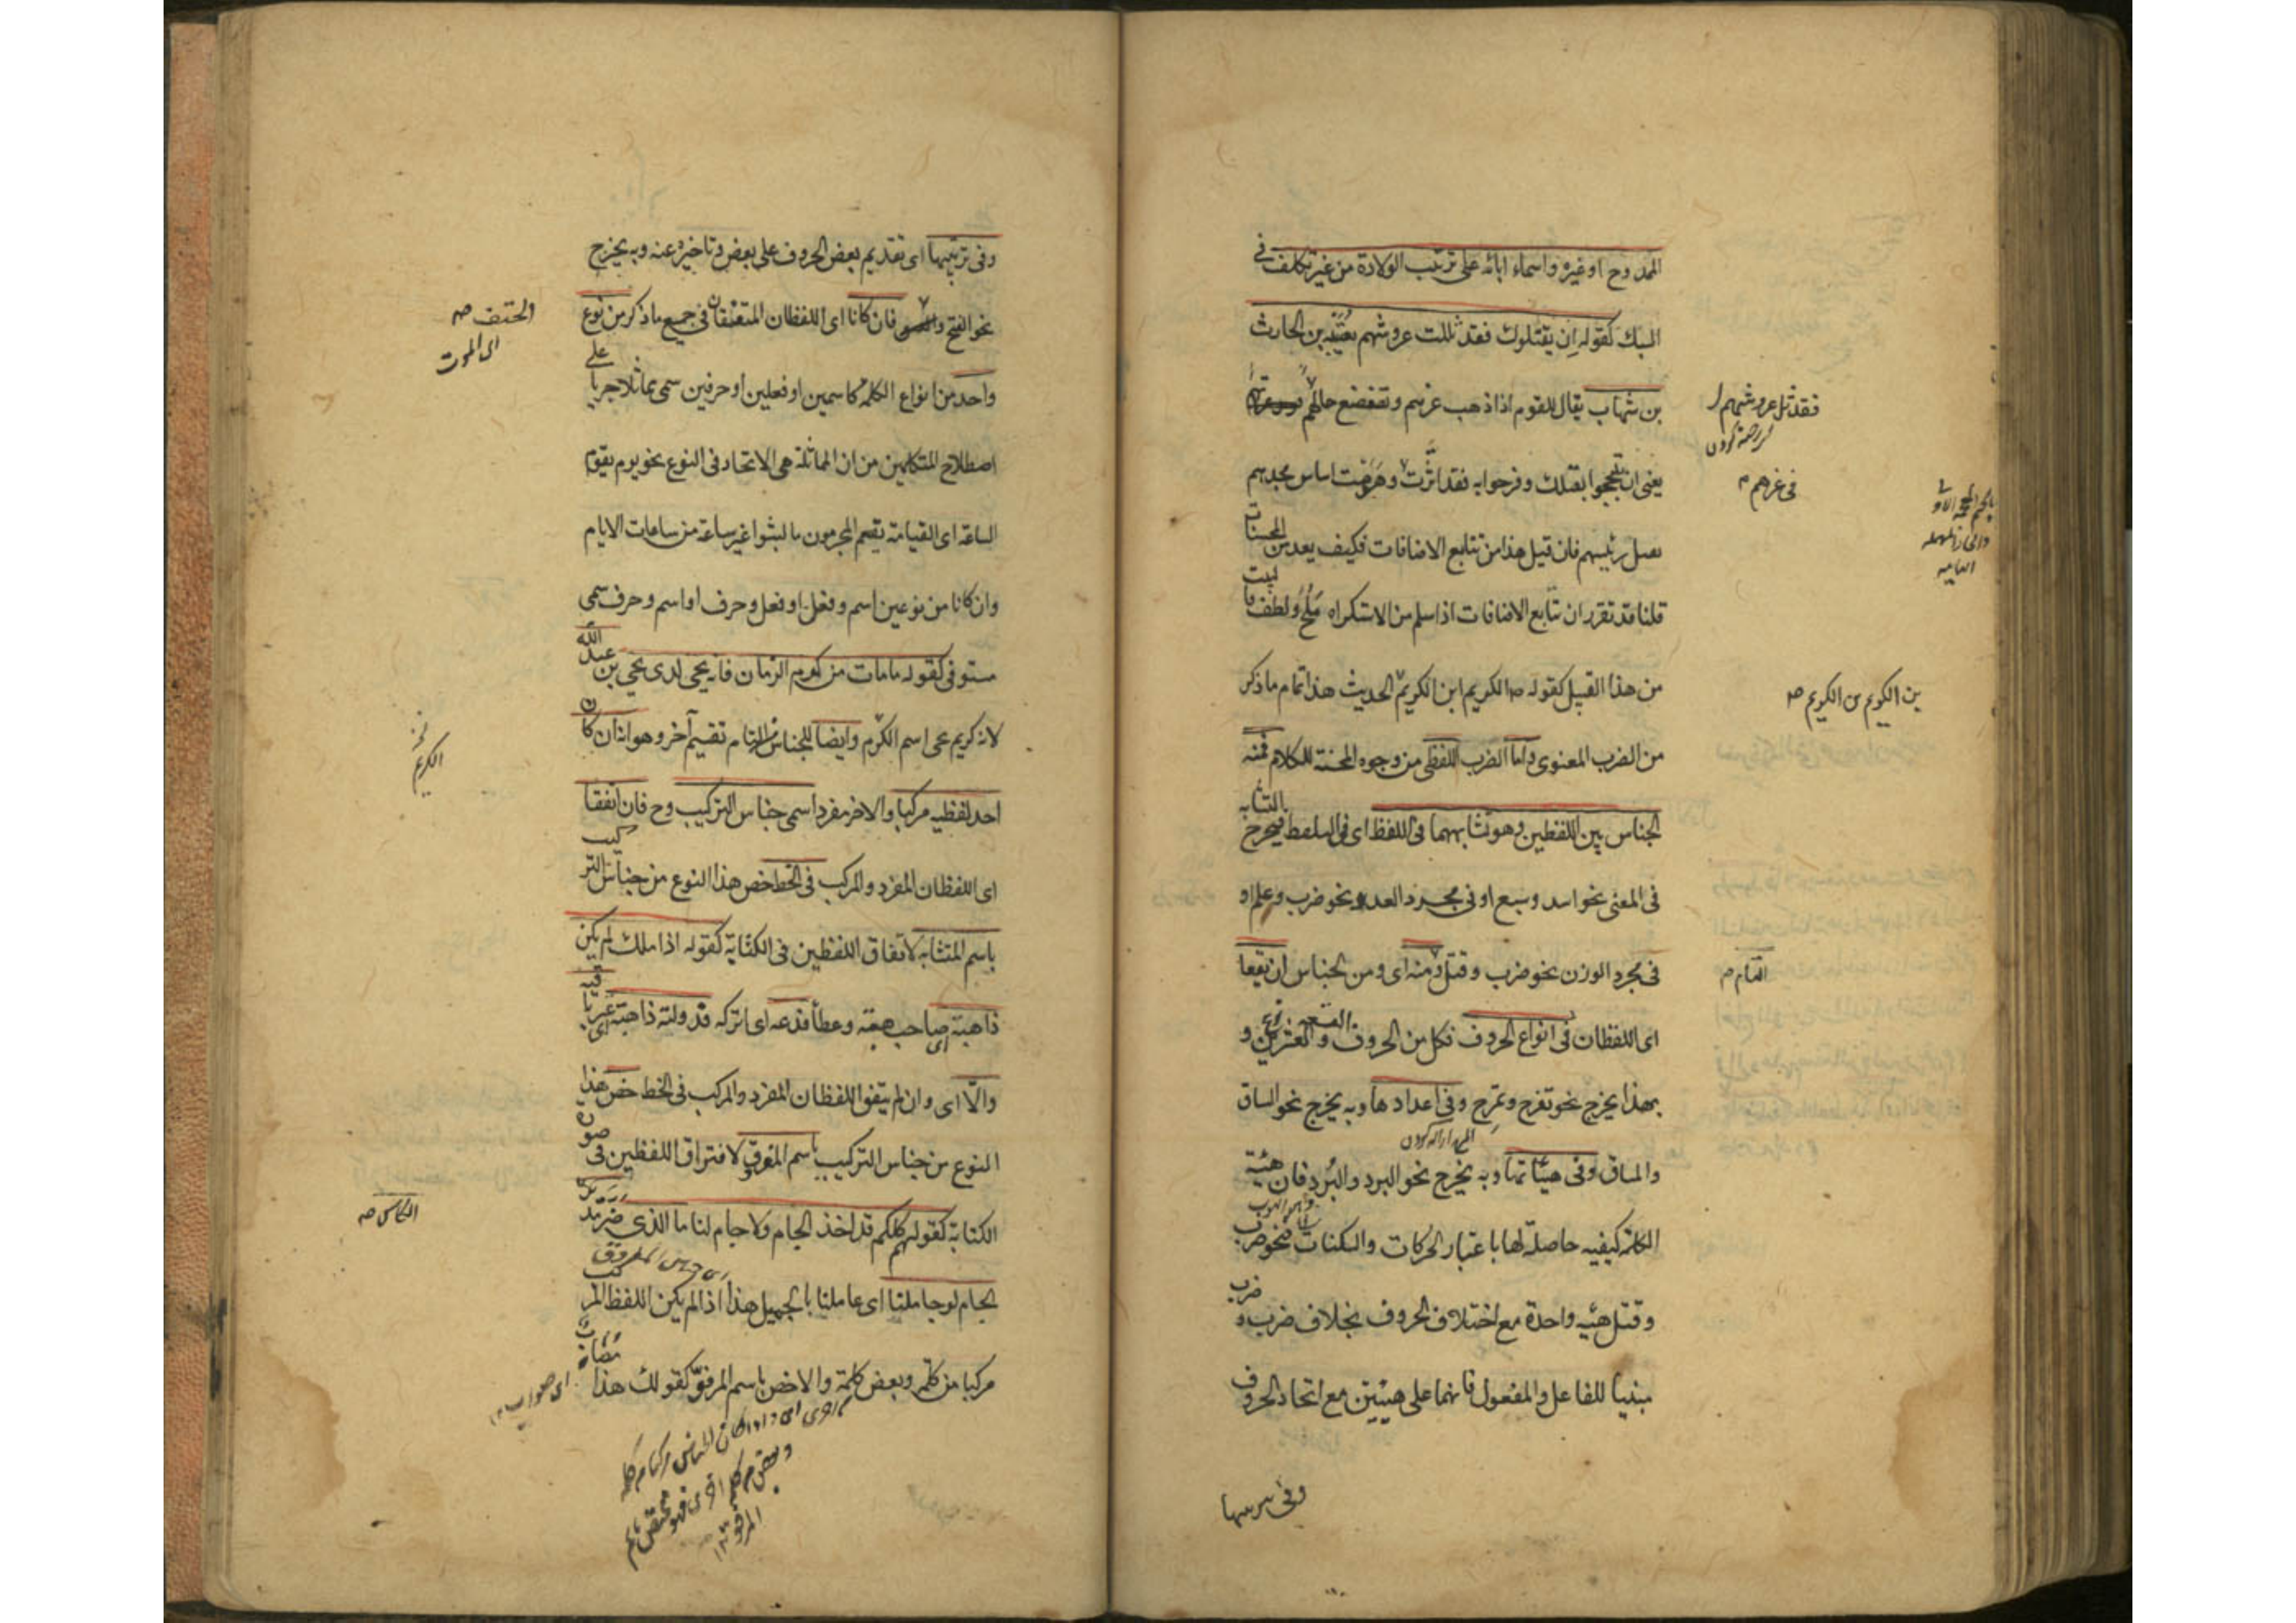 الممدوح او غيره واسماء ابائه على ترتيب الولادة من غير تكلف في
السبك كقوله ان يقتلوك فقد ثللت عروشهم بعتيبة بن الحارث
بن شهاب يقال للقوم اذا ذهب عزهم وتضعضع حالهم
فقد ثل عروشهم
يعنى ان تبجحوا بقتلك وفرحوا به فقد اثرت وهدمت اساس مجدهم
فى عزهم
بقتل رئيسهم فان قيل هذا من تتابع الاضافات فكيف يعد من المحسنات
قلنا قد تقرر ان تتابع الاضافات اذا سلم من الاستكراه ملح ولطف والبيت
من هذا القبيل كقوله الكريم ابن الكريم الحديث هذا تمام ما ذكر
بن الكريم بن الكريم صح
من الضرب المعنوى واما الضرب اللفظى من وجوه المحسنة للكلام فمنه
الجناس بين اللفظين وهو تشابههما فى اللفظ اى فى التلفظ فيخرج التشابه
فى المعنى نحو اسد وسبع او فى مجرد العدد نحو ضرب وعلم او
فى مجرد الوزن نحو ضرب وقتل ومنه اى ومن الجناس ان يتفقا
التام
اى اللفظان فى انواع الحروف فكل من الحروف التسعة والعشرين نوع و
بهذا يخرج نحو تفرح وتمرح وفى اعدادها وبه يخرج نحو الساق
والمساق وفى هيئاتها وبه يخرج نحو البرد والبُرد فان هيئة
الكلمة كيفيه حاصلة لها باعتبار الحركات والسكنات فنحو ضرب
وقتل هيئه واحدة مع اختلاف الحروف بخلاف ضرب و ضرب
مبنيا للفاعل والمفعول فانهما على هيئتين مع اتحاد الحروف
وفى ترتيبها
وفى ترتيبها اى تقديم بعض الحروف على بعض وتاخيره عنه وبه يخرج
نحو الفتح و فان كانا اى اللفظان المتفقان فى جميع ما ذكر من نوع
والحتف صح
اى الموت
واحد من انواع الكلمه كاسمين او فعلين او حرفين سمى مماثلا جريا على
اصطلاح المتكلمين من ان المماثلة هى الاتحاد فى النوع نحو يوم تقوم
الساعة اى القيامة يقسم المجرمون ما لبثوا غير ساعة من ساعات الايام
وان كانا من نوعين اسم وفعل او فعل وحرف او اسم وحرف سمى
مستوفى كقوله مامات من كرم الزمان فانه يحيى لدى يحيى بن عبد الله
لانه كريم يحيى اسم الكرم وايضا للجناس التام تقسيم آخر وهو انه ان كان
الكريم
احد لفظيه مركبا والاخر مفردا سمى جناس التركيب وح فان اتفقا
اى اللفظان المفرد والمركب فى الخط خص هذا النوع من جناس التركيب
باسم المتشابه لاتفاق اللفظين فى الكتابة كقوله اذا ملك لم يكن
ذا هبة اى صاحب هبة وعطأ فدعه اى اتركه فدولته ذاهبة اى غير باقية
والّا اى وان لم يتفق اللفظان المفرد والمركب فى الخط خص هذا
النوع من جناس التركيب باسم المفروق لافتراق اللفظين فى صورة
الكتابة كقوله كلكم قد اخذ الجام ولا جام لنا ما الذى ضر مدير
الكاس صح
الجام لو جاملنا اى عاملنا بالجميل هذا اذا لم يكن اللفظ المركب
مركبا من كلمة وبعض كلمة والا خص باسم المرفوّ كقولك هذا مصاب
اى صواب